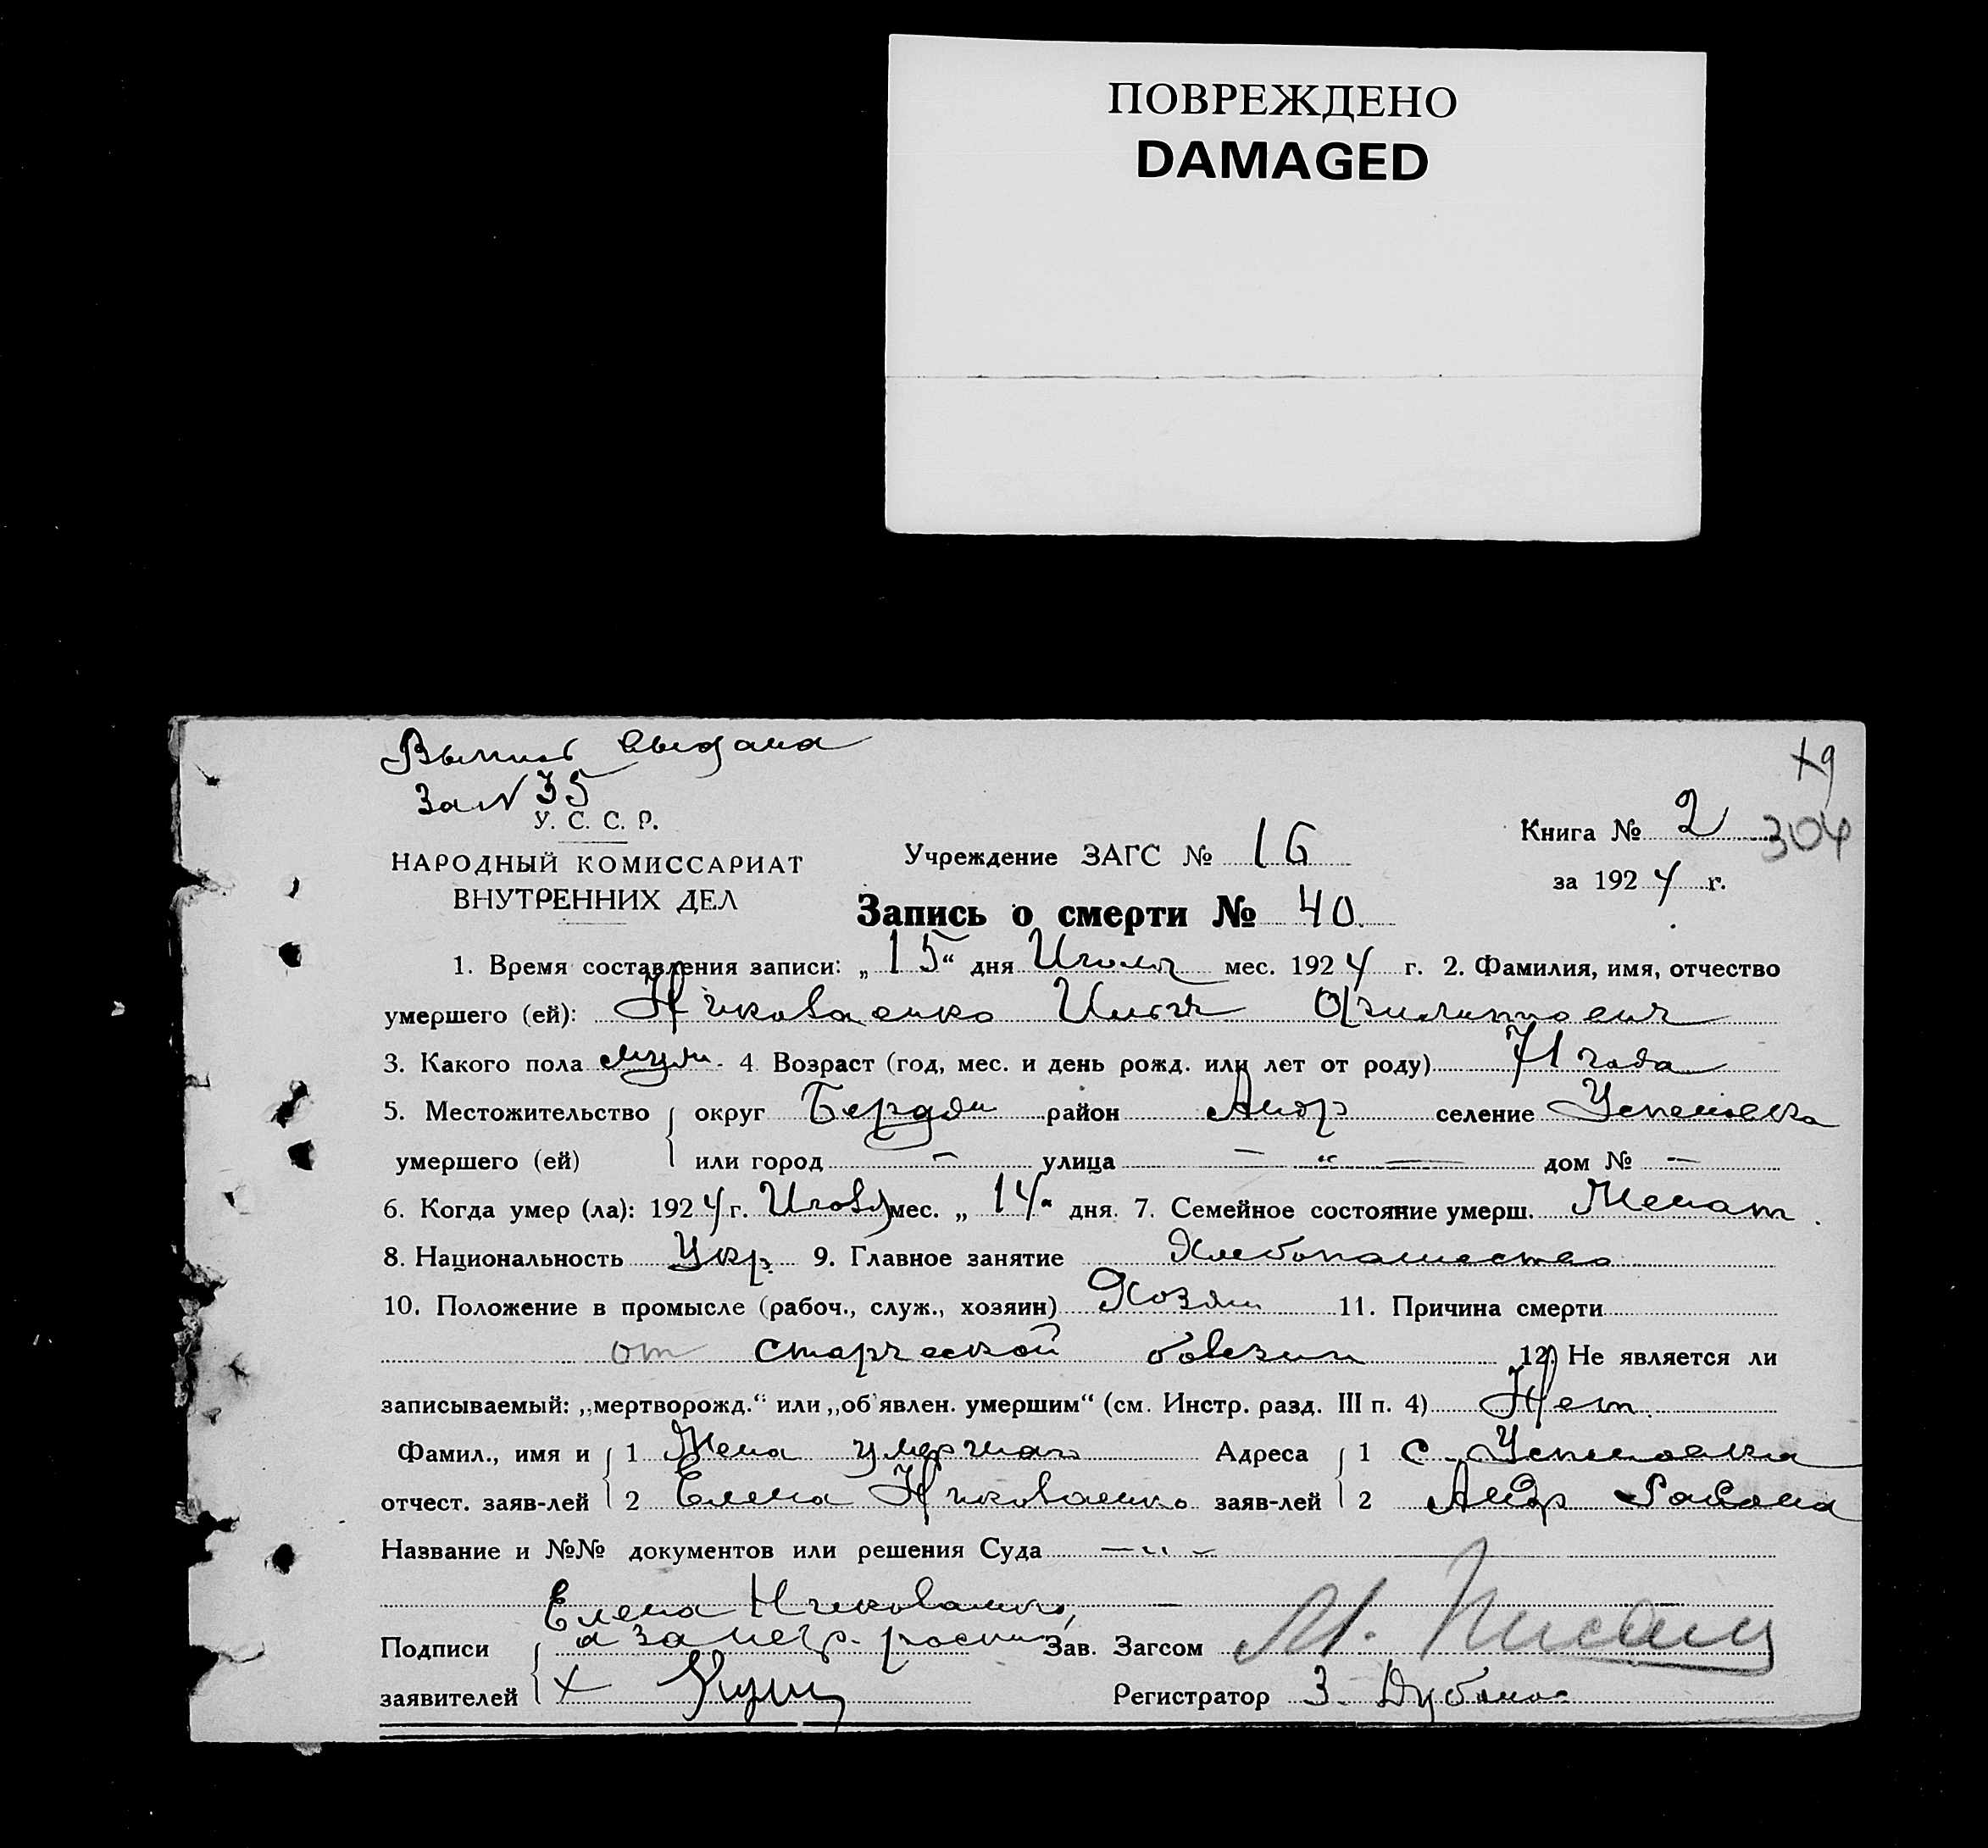 ПОВРЕЖДЕНО
DAMAGED
Выпись выдана
За № 35
У. С. С. Р.
НАРОДНЫЙ КОМИССАРИАТ
ВНУТРЕННИХ ДЕЛ
Учреждение ЗАГС № 16
Книга № 2
304
за 1924 г.
Запись о смерти № 40
1. Время составления записи: „15“ дня Июля мес. 1924 г. 2. Фамилия, имя, отчество
умершего (ей): Никоваенко Илья Филиппович
3. Какого пола муж. 4. Возраст (год, мес. и день рожд. или лет от роду) 71 года
5. Местожительство округ Бердян район Андр селение Успеновка
умершего (ей) или город — улица — „ — дом № —
6. Когда умер (ла): 1924 г. Июля мес. „14“ дня. 7. Семейное состояние умерш. Женат.
8. Национальность Укр. 9. Главное занятие Хлебопашество
10. Положение в промысле (рабоч., служ., хозяин) Хозяин 11. Причина смерти
от старческой болезни 12. Не является ли
записываемый: „мертворожд.“ или „об'явлен. умершим“ (см. Инстр. разд. III п. 4) Нет.
Фамил., имя и 1 Жена умершаго Адреса 1 с. Успеновка
отчест. заяв-лей 2 Елена Никоваенко заяв-лей 2 Андр Района
Название и №№ документов или решения Суда — „ —
Елена Никоваенко,
Подписи а за негр. росп. Зав. Загсом
заявителей + Регистратор З.